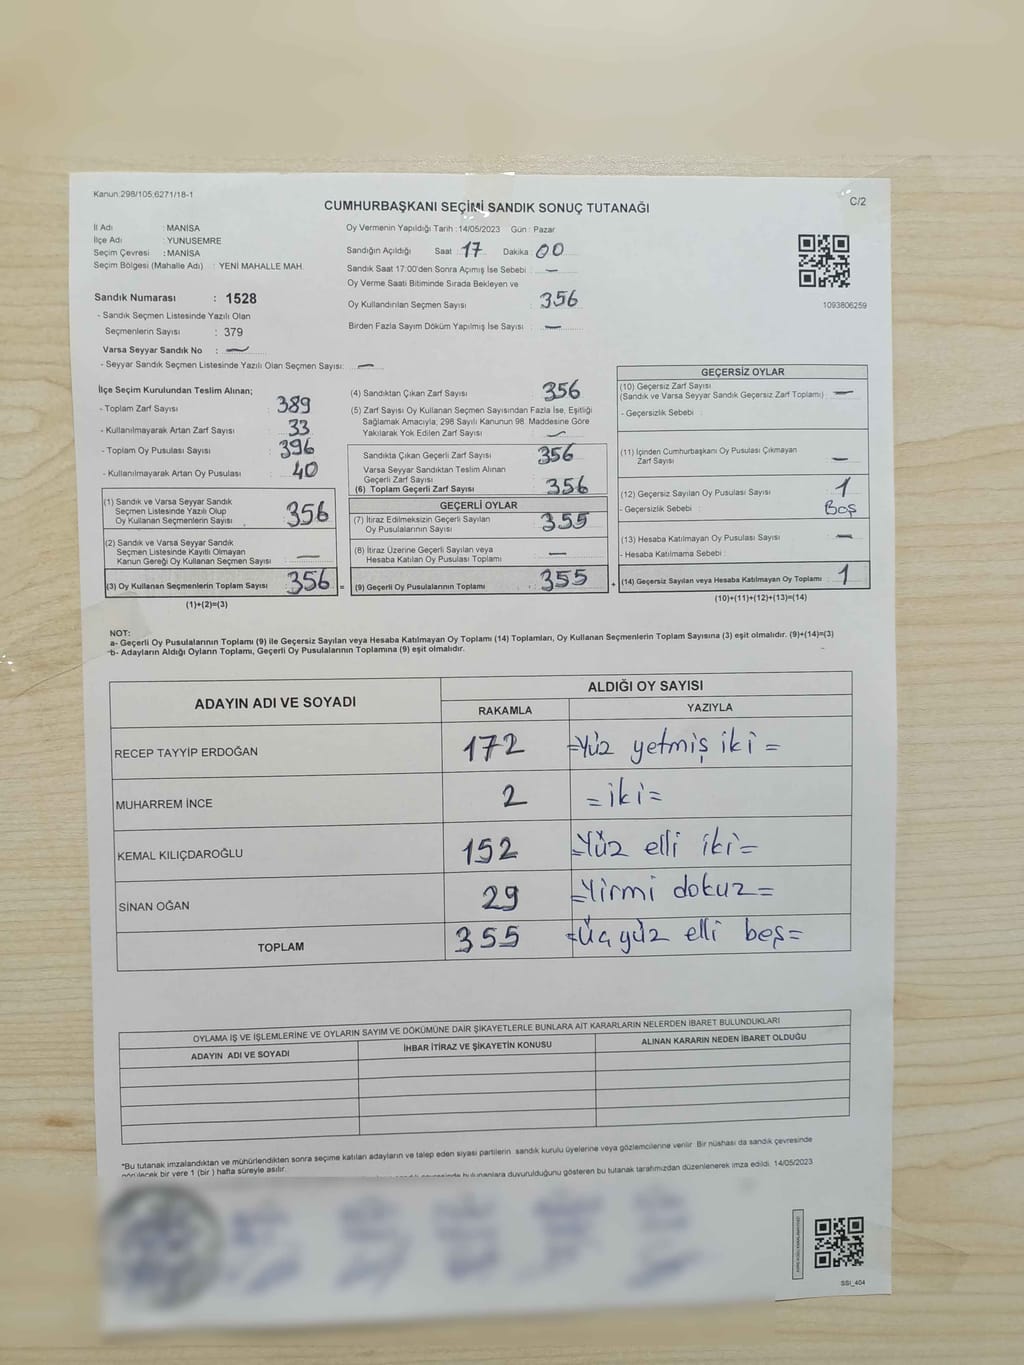 Kanun:298/105,6271/18-1
C/2
CUMHURBAŞKANI SEÇİMİ SANDIK SONUÇ TUTANAĞI
İl Adı : MANİSA
İlçe Adı : YUNUSEMRE
Seçim Çevresi : MANİSA
Seçim Bölgesi (Mahalle Adı) : YENİ MAHALLE MAH.
Sandık Numarası : 1528
- Sandık Seçmen Listesinde Yazılı Olan
Seçmenlerin Sayısı : 379
Varsa Seyyar Sandık No : —
- Seyyar Sandık Seçmen Listesinde Yazılı Olan Seçmen Sayısı: —
Oy Vermenin Yapıldığı Tarih : 14/05/2023 Gün : Pazar
Sandığın Açıldığı Saat : 17 Dakika 00
Sandık Saat 17:00'den Sonra Açımış İse Sebebi : —
Oy Verme Saati Bitiminde Sırada Bekleyen ve
Oy Kullandırılan Seçmen Sayısı : 356
Birden Fazla Sayım Döküm Yapılmış İse Sayısı : —
1093806259
İlçe Seçim Kurulundan Teslim Alınan;
- Toplam Zarf Sayısı : 389
- Kullanılmayarak Artan Zarf Sayısı : 33
- Toplam Oy Pusulası Sayısı : 396
- Kullanılmayarak Artan Oy Pusulası : 40
(1) Sandık ve Varsa Seyyar Sandık
Seçmen Listesinde Yazılı Olup
Oy Kullanan Seçmenlerin Sayısı : 356
(2) Sandık ve Varsa Seyyar Sandık
Seçmen Listesinde Kayıtlı Olmayan
Kanun Gereği Oy Kullanan Seçmen Sayısı : —
(3) Oy Kullanan Seçmenlerin Toplam Sayısı : 356 =
(1)+(2)=(3)
(4) Sandıktan Çıkan Zarf Sayısı : 356
(5) Zarf Sayısı Oy Kullanan Seçmen Sayısından Fazla İse, Eşitliği
Sağlamak Amacıyla; 298 Sayılı Kanunun 98. Maddesine Göre
Yakılarak Yok Edilen Zarf Sayısı : —
Sandıkta Çıkan Geçerli Zarf Sayısı : 356
Varsa Seyyar Sandıktan Teslim Alınan
Geçerli Zarf Sayısı
(6) Toplam Geçerli Zarf Sayısı : 356
GEÇERLİ OYLAR
(7) İtiraz Edilmeksizin Geçerli Sayılan
Oy Pusulalarının Sayısı : 355
(8) İtiraz Üzerine Geçerli Sayılan veya
Hesaba Katılan Oy Pusulası Toplamı : —
(9) Geçerli Oy Pusulalarının Toplamı : 355 +
GEÇERSİZ OYLAR
(10) Geçersiz Zarf Sayısı
(Sandık ve Varsa Seyyar Sandık Geçersiz Zarf Toplamı) : —
- Geçersizlik Sebebi :
(11) İçinden Cumhurbaşkanı Oy Pusulası Çıkmayan
Zarf Sayısı : —
(12) Geçersiz Sayılan Oy Pusulası Sayısı : 1
- Geçersizlik Sebebi : Boş
(13) Hesaba Katılmayan Oy Pusulası Sayısı : —
- Hesaba Katılmama Sebebi :
(14) Geçersiz Sayılan veya Hesaba Katılmayan Oy Toplamı : 1
(10)+(11)+(12)+(13)=(14)
NOT:
a- Geçerli Oy Pusulalarının Toplamı (9) ile Geçersiz Sayılan veya Hesaba Katılmayan Oy Toplamı (14) Toplamları, Oy Kullanan Seçmenlerin Toplam Sayısına (3) eşit olmalıdır. (9)+(14)=(3)
b- Adayların Aldığı Oyların Toplamı, Geçerli Oy Pusulalarının Toplamına (9) eşit olmalıdır.
ADAYIN ADI VE SOYADI
ALDIĞI OY SAYISI
RAKAMLA YAZIYLA
RECEP TAYYİP ERDOĞAN 172 =Yüz yetmiş iki =
MUHARREM İNCE 2 = iki =
KEMAL KILIÇDAROĞLU 152 =Yüz elli iki=
SİNAN OĞAN 29 =Yirmi dokuz=
TOPLAM 355 =Üç yüz elli beş=
OYLAMA İŞ VE İŞLEMLERİNE VE OYLARIN SAYIM VE DÖKÜMÜNE DAİR ŞİKAYETLERLE BUNLARA AİT KARARLARIN NELERDEN İBARET BULUNDUKLARI
ADAYIN ADI VE SOYADI İHBAR İTİRAZ VE ŞİKAYETİN KONUSU ALINAN KARARIN NEDEN İBARET OLDUĞU
*Bu tutanak imzalandıktan ve mühürlendikten sonra seçime katılan adayların ve talep eden siyasi partilerin sandık kurulu üyelerine veya gözlemcilerine verilir. Bir nüshası da sandık çevresinde
görülecek bir yere 1 (bir) hafta süreyle asılır.
bulunanlara duyurulduğunu gösteren bu tutanak tarafımızdan düzenlenerek imza edildi. 14/05/2023
SSİ_404